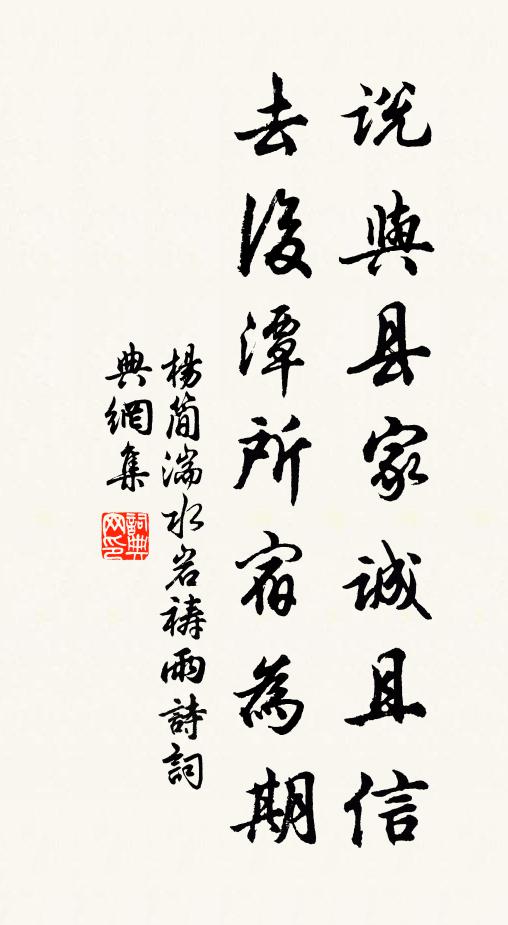 说與县家誠且信
去後潭所宿為期
楊簡湍水岩禱雨詩詞
典網集
詞典
网印